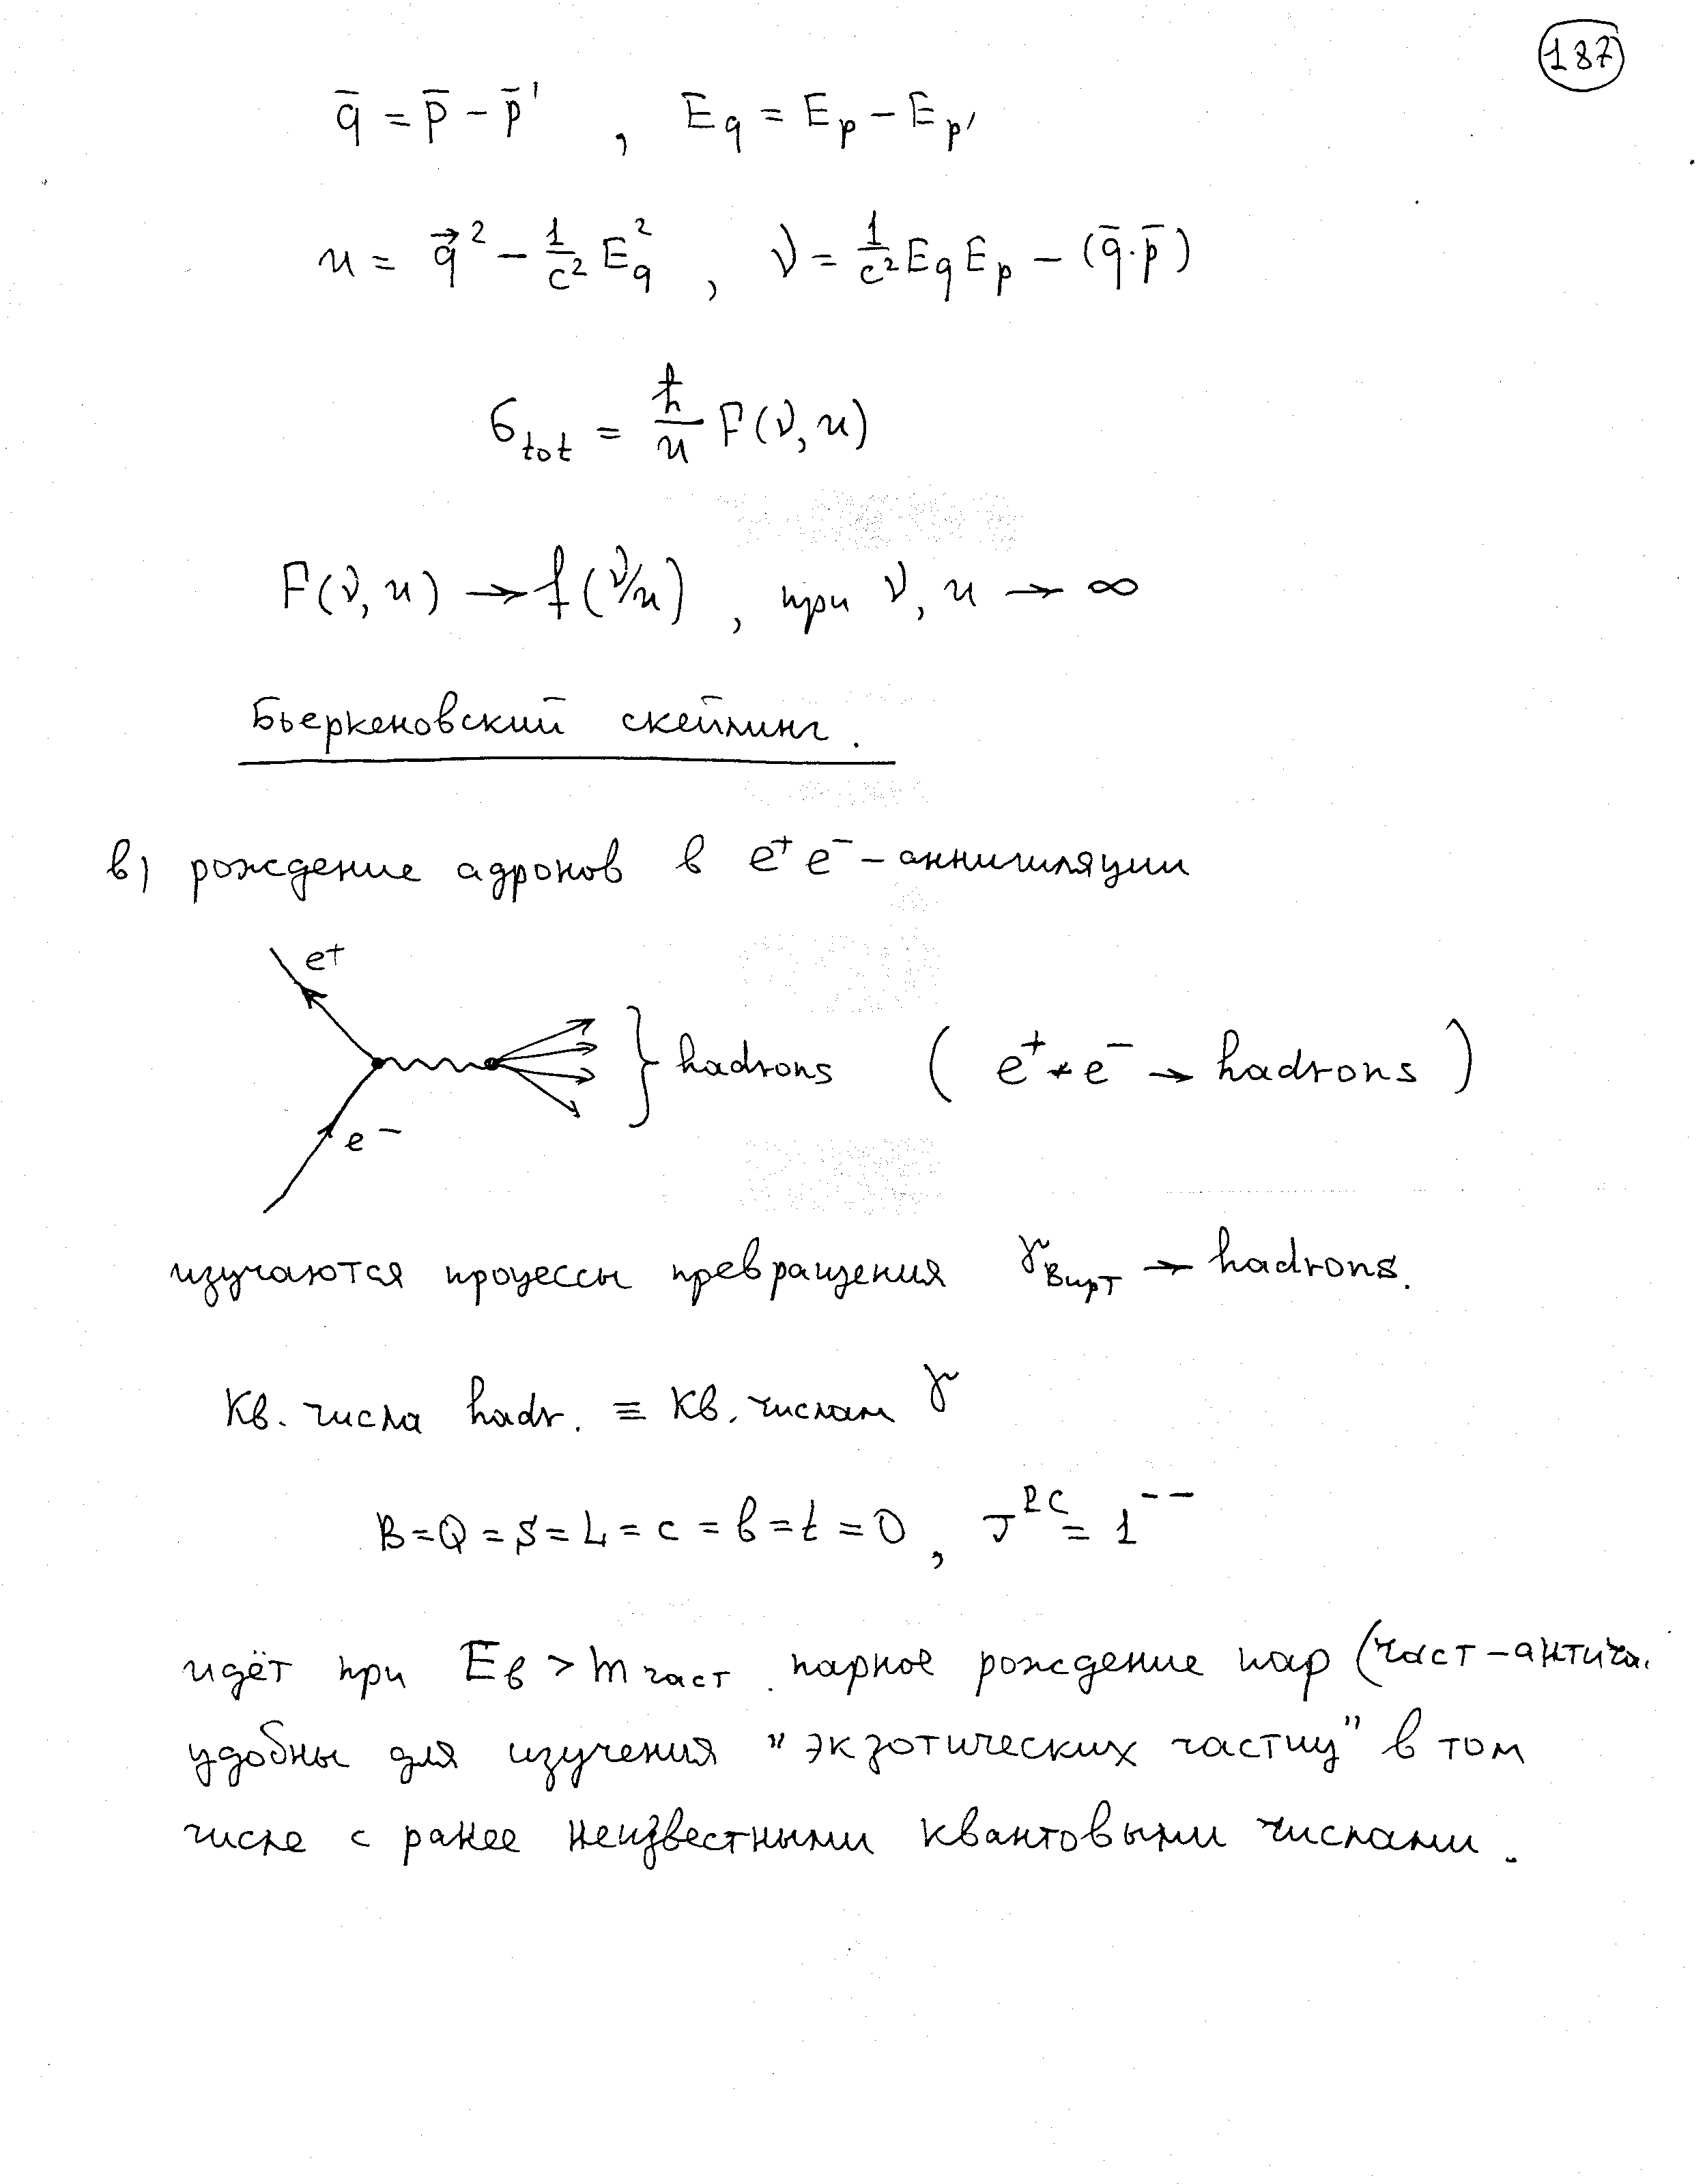 187
q̄ = p̄ − p̄' , E_q = E_p − E_p'
u = q⃗² − 1/c² E_q² , ν = 1/c² E_q E_p − (q̄·p̄)
σ_tot = ħ/u F(ν, u)
F(ν, u) → f(ν/u) , при ν, u → ∞
Бьеркеновский скейлинг.
в) рождение адронов в e⁺e⁻-аннигиляции
e⁺
} hadrons ( e⁺ + e⁻ → hadrons )
e⁻
изучаются процессы превращения γ_вирт → hadrons.
Кв. числа hadr. ≡ кв. числам γ
B = Q = S = L = c = b = t = 0 , J^PC = 1^−−
идёт при E_в > m_част . парное рождение пар (част-антича.
удобны для изучения "экзотических частиц" в том
числе с ранее неизвестными квантовыми числами.